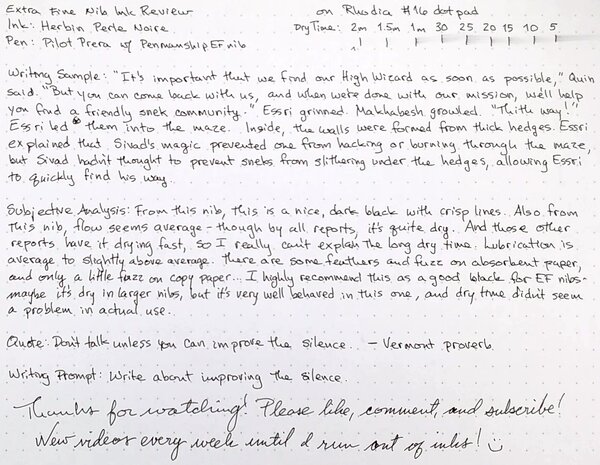 Extra Fine Nib Ink Review on Rhodia #16 dotpad
Ink: Herbin Perle Noire Dry Time: 2m 1.5m 1m 30 25 20 15 10 5
Pen: Pilot Prera w/ Penmanship EF nib
Writing Sample: "It's important that we find our High Wizard as soon as possible," Quin
said. "But you can come back with us, and when we're done with our mission, we'll help
you find a friendly snek community." Essri grinned. Makhabesh growled. "Thith way!"
Essri led them into the maze. Inside, the walls were formed from thick hedges. Essri
explained that Sivad's magic prevented one from hacking or burning through the maze,
but Sivad hadn't thought to prevent sneks from slithering under the hedges, allowing Essri
to quickly find his way.
Subjective Analysis: From this nib, this is a nice, dark black with crisp lines. Also from
this nib, flow seems average - though by all reports, it's quite dry. And those other
reports have it drying fast, so I really can't explain the long dry time. Lubrication is
average to slightly above average. There are some feathers and fuzz on absorbent paper,
and only a little fuzz on copy paper... I highly recommend this as a good black for EF nibs-
maybe it's dry in larger nibs, but it's very well behaved in this one, and dry time didn't seem
a problem in actual use.
Quote: Don't talk unless you can improve the silence. - Vermont proverb
Writing Prompt: Write about improving the silence.
Thanks for watching! Please like, comment, and subscribe!
New videos every week until I run out of inks!